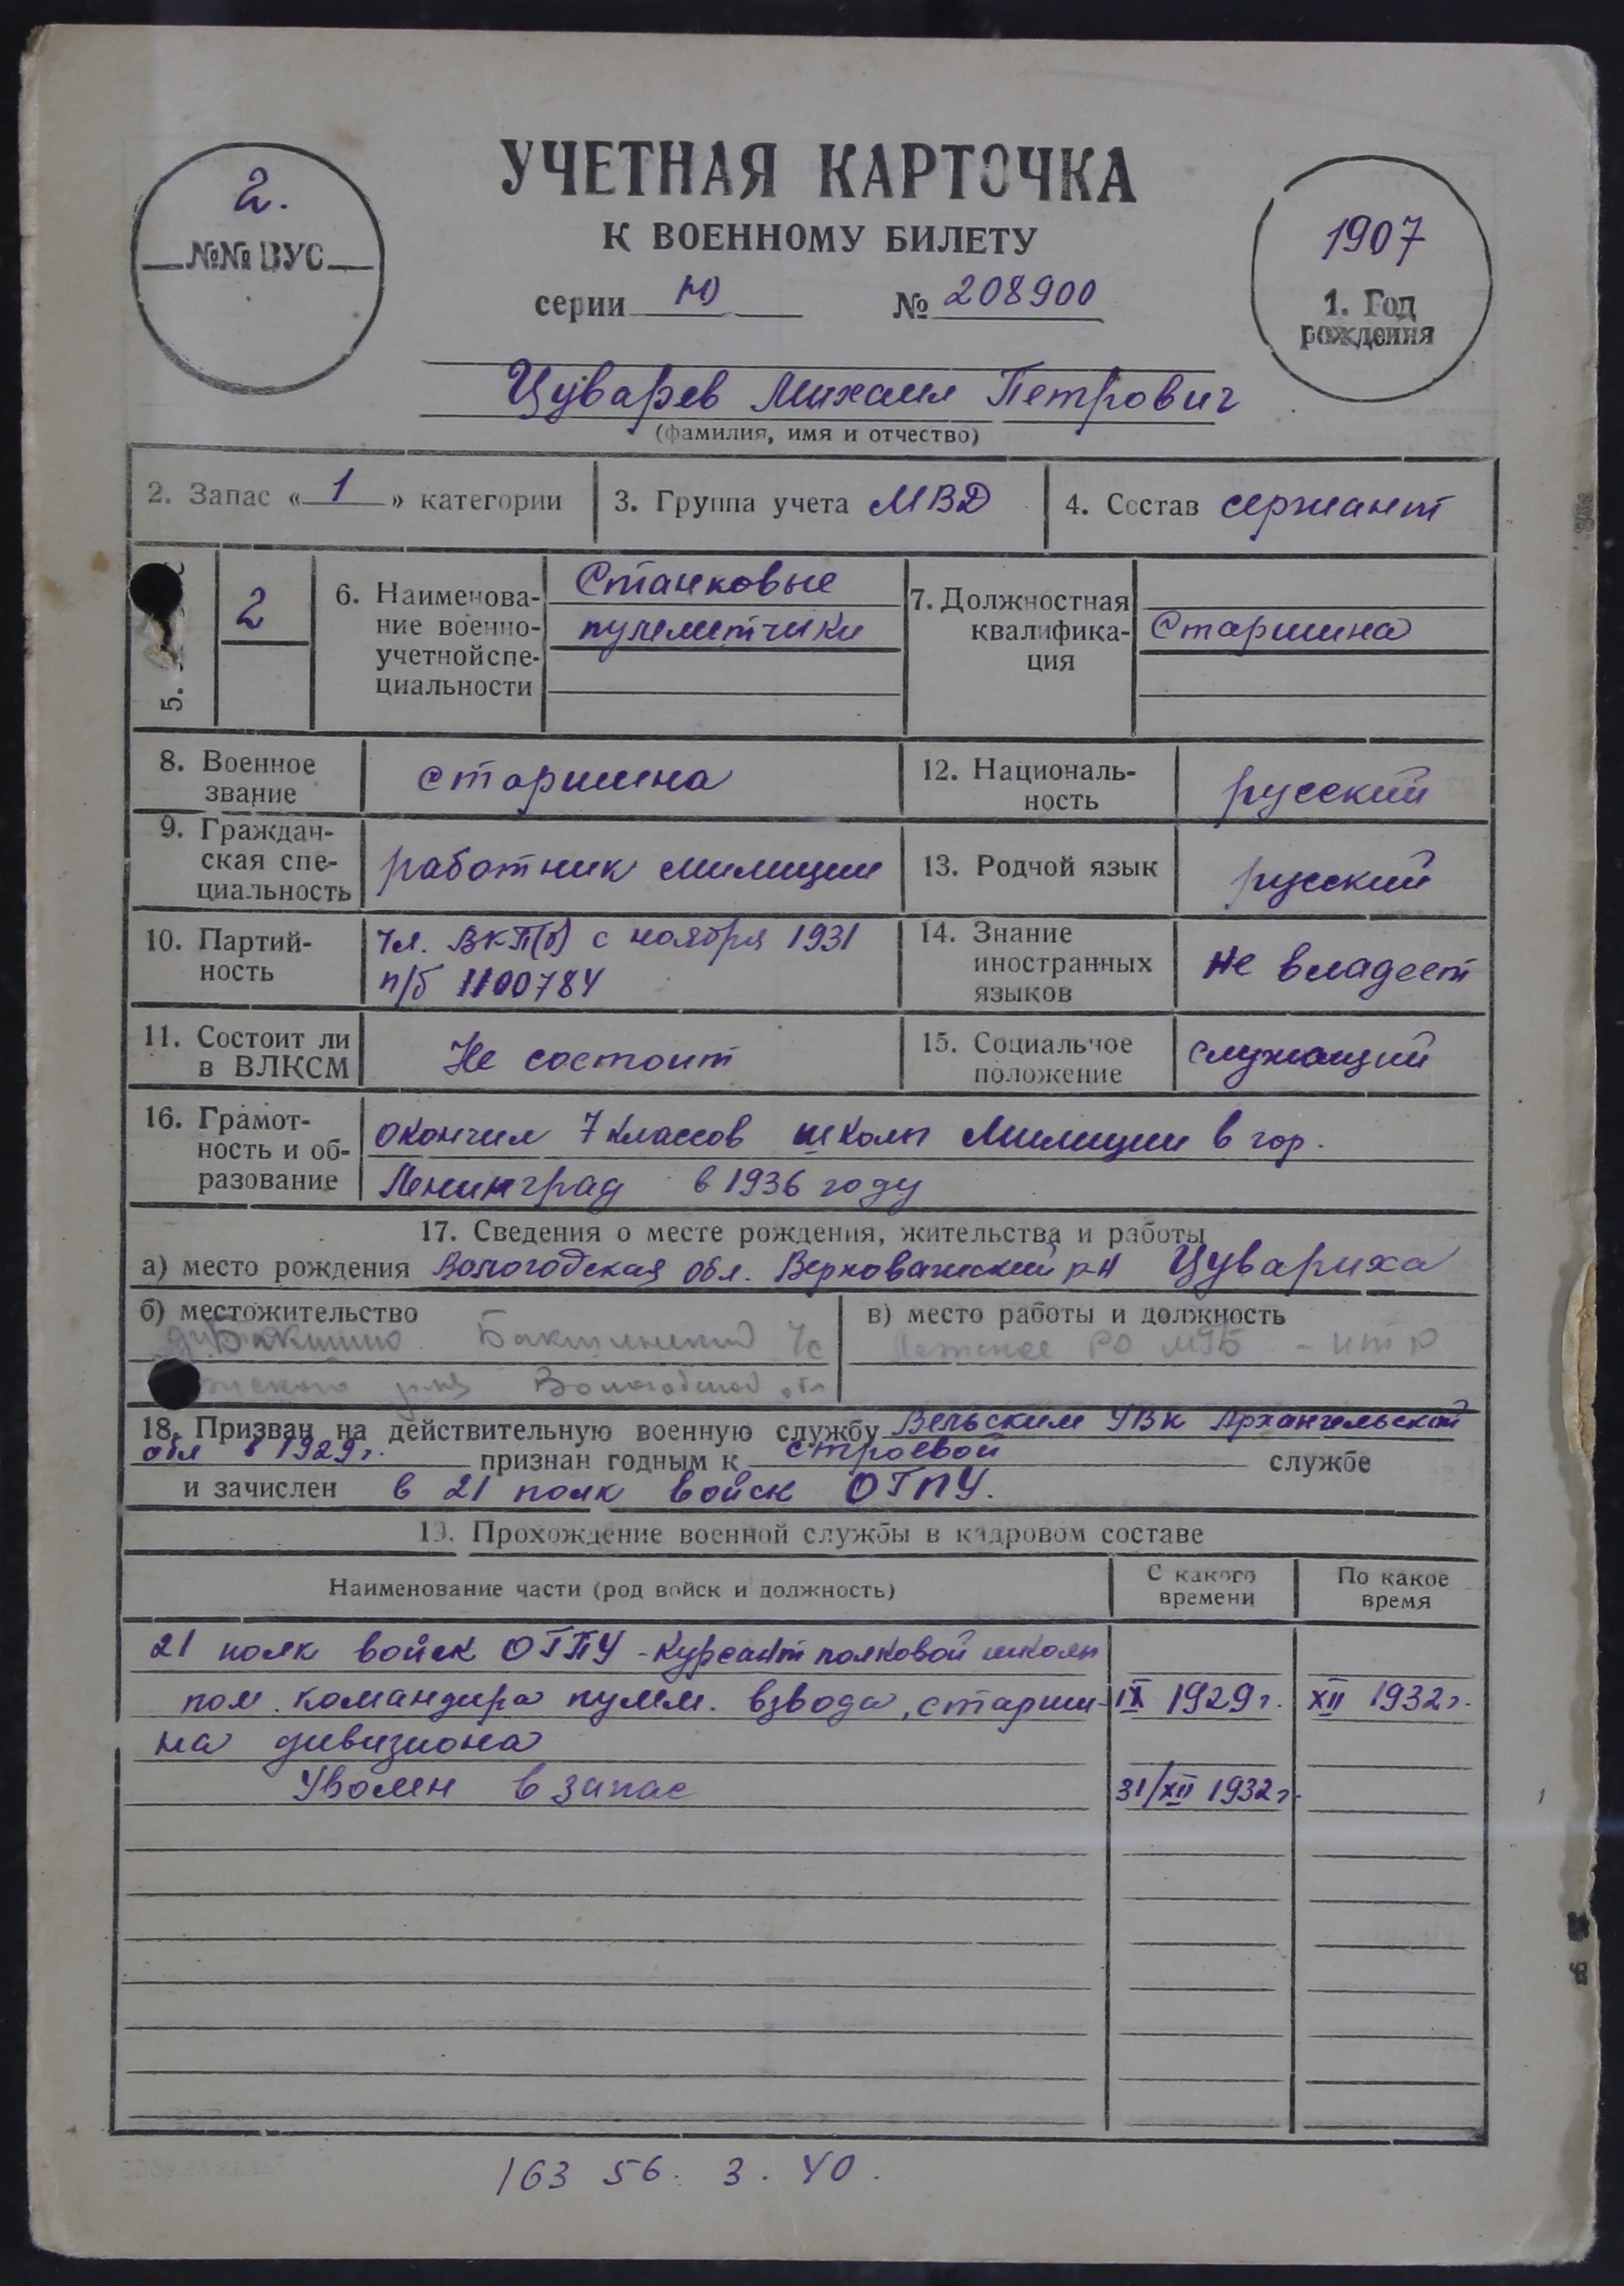 УЧЕТНАЯ КАРТОЧКА
К ВОЕННОМУ БИЛЕТУ
серии Ю № 208900
2.
№№ ВУС
1907
1. Год
рождения
Цуварев Михаил Петрович
(фамилия, имя и отчество)
2. Запас « 1 » категории
3. Группа учета МВД
4. Состав сержант
5.
2
6. Наименова-
ние военно-
учетнойспе-
циальности
Станковые
пулеметчики
7. Должностная
квалифика-
ция
Старшина
8. Военное
звание
старшина
12. Националь-
ность
русский
9. Граждан-
ская спе-
циальность
работник милиции
13. Родной язык
русский
10. Партий-
ность
Чл. ВКП(б) с ноября 1931
п/б 1100784
14. Знание
иностранных
языков
не владеет
11. Состоит ли
в ВЛКСМ
Не состоит
15. Социальное
положение
служащий
16. Грамот-
ность и об-
разование
окончил 7 классов школы Милиции в гор.
Ленинград в 1936 году
17. Сведения о месте рождения, жительства и работы
а) место рождения Вологодская обл. Верховажский р-н Цувариха
б) местожительство
Бакшино
Вологодской обл
в) место работы и должность
РО МГБ
18. Призван на действительную военную службу Вельским УВК Архангельской
обл в 1929г. признан годным к строевой службе
и зачислен в 21 полк войск ОГПУ.
19. Прохождение военной службы в кадровом составе
Наименование части (род войск и должность)
С какого
времени
По какое
время
21 полк войск ОГПУ - курсант полковой школы
пом. командира пулем. взвода, старши- IX 1929г. XII 1932г.
на дивизиона
Уволен в запас 31/XII 1932г.
163 56. 3. 40.